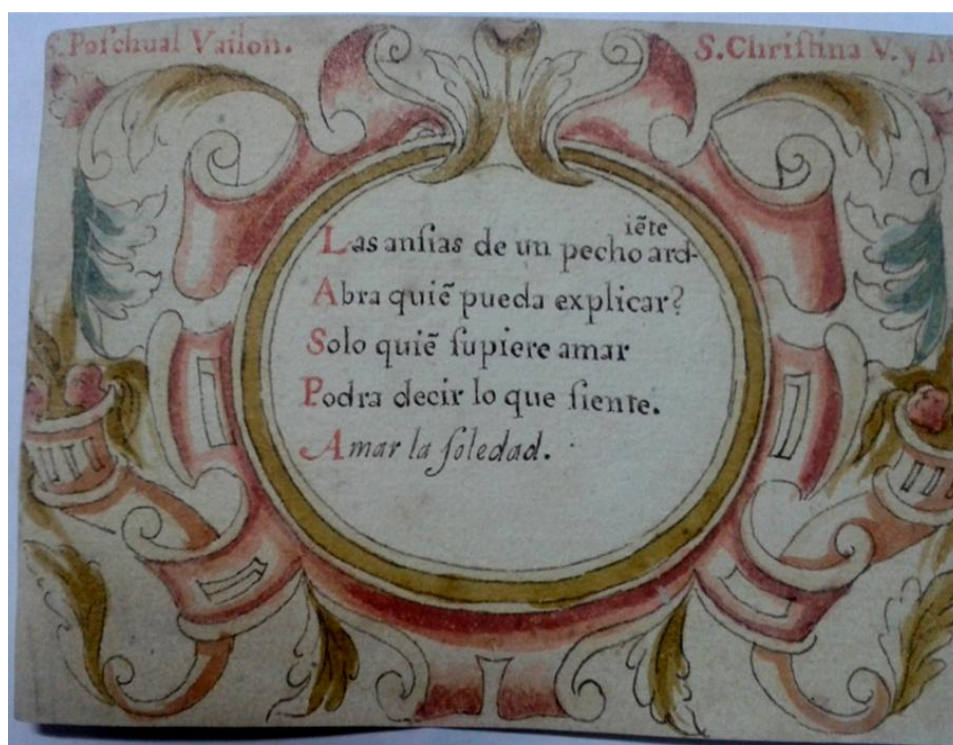 S. Poſchual Vailon.
S. Chriſtina V. y M
Las anſias de un pecho ard-
iẽte
Abra quiẽ pueda explicar?
Solo quiẽ ſupiere amar
Podra decir lo que ſiente.
Amar la ſoledad.